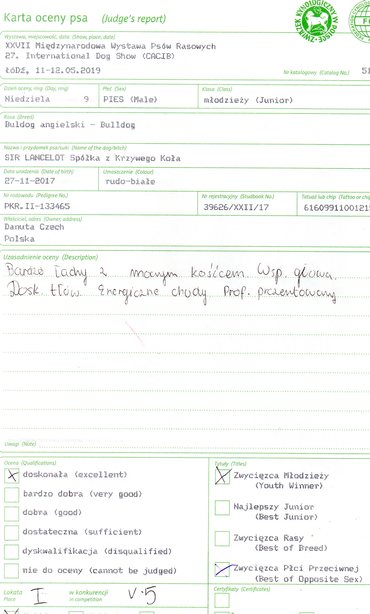 Karta oceny psa (Judge's report)
ZWIĄZEK KYNOLOGICZNY W POLSCE
Wystawa, miejscowość, data (Show, place, date)
XXVII Międzynarodowa Wystawa Psów Rasowych
27. International Dog Show (CACIB)
Łódź, 11-12.05.2019
Nr katalogowy (Catalog No.)
Dzień oceny, ring (Day, ring) Płeć (Sex) Klasa (Class)
Niedziela 9 PIES (Male) młodzieży (Junior)
Rasa (Breed)
Buldog angielski - Bulldog
Nazwa i przydomek psa/suki (Name of the dog/bitch)
SIR LANCELOT Spółka z Krzywego Koła
Data urodzenia (Date of birth) Umaszczenie (Colour)
27-11-2017 rudo-białe
Nr rodowodu (Pedigree No.) Nr rejestracyjny (Studbook No.) Tatuaż lub chip (Tattoo or chip
PKR.II-133465 39626/XXII/17 6160991100121
Właściciel, adres (Owner, address)
Danuta Czech
Polska
Uzasadnienie oceny (Description)
Bardzo ładny z mocnym kośćcem. Wsp. głowa.
Dosk. tłów. Energiczne chody Prof. prezentowany
Uwagi (Note)
Ocena (Qualifications) Tytuły (Titles)
doskonała (excellent) Zwycięzca Młodzieży
(Youth Winner)
bardzo dobra (very good)
dobra (good) Najlepszy Junior
(Best Junior)
dostateczna (sufficient) Zwycięzca Rasy
(Best of Breed)
dyskwalifikacja (disqualified)
nie do oceny (cannot be judged) Zwycięzca Płci Przeciwnej
(Best of Opposite Sex)
Lokata I w konkurencji V-5 Certyfikaty (Certificates)
Place in competition